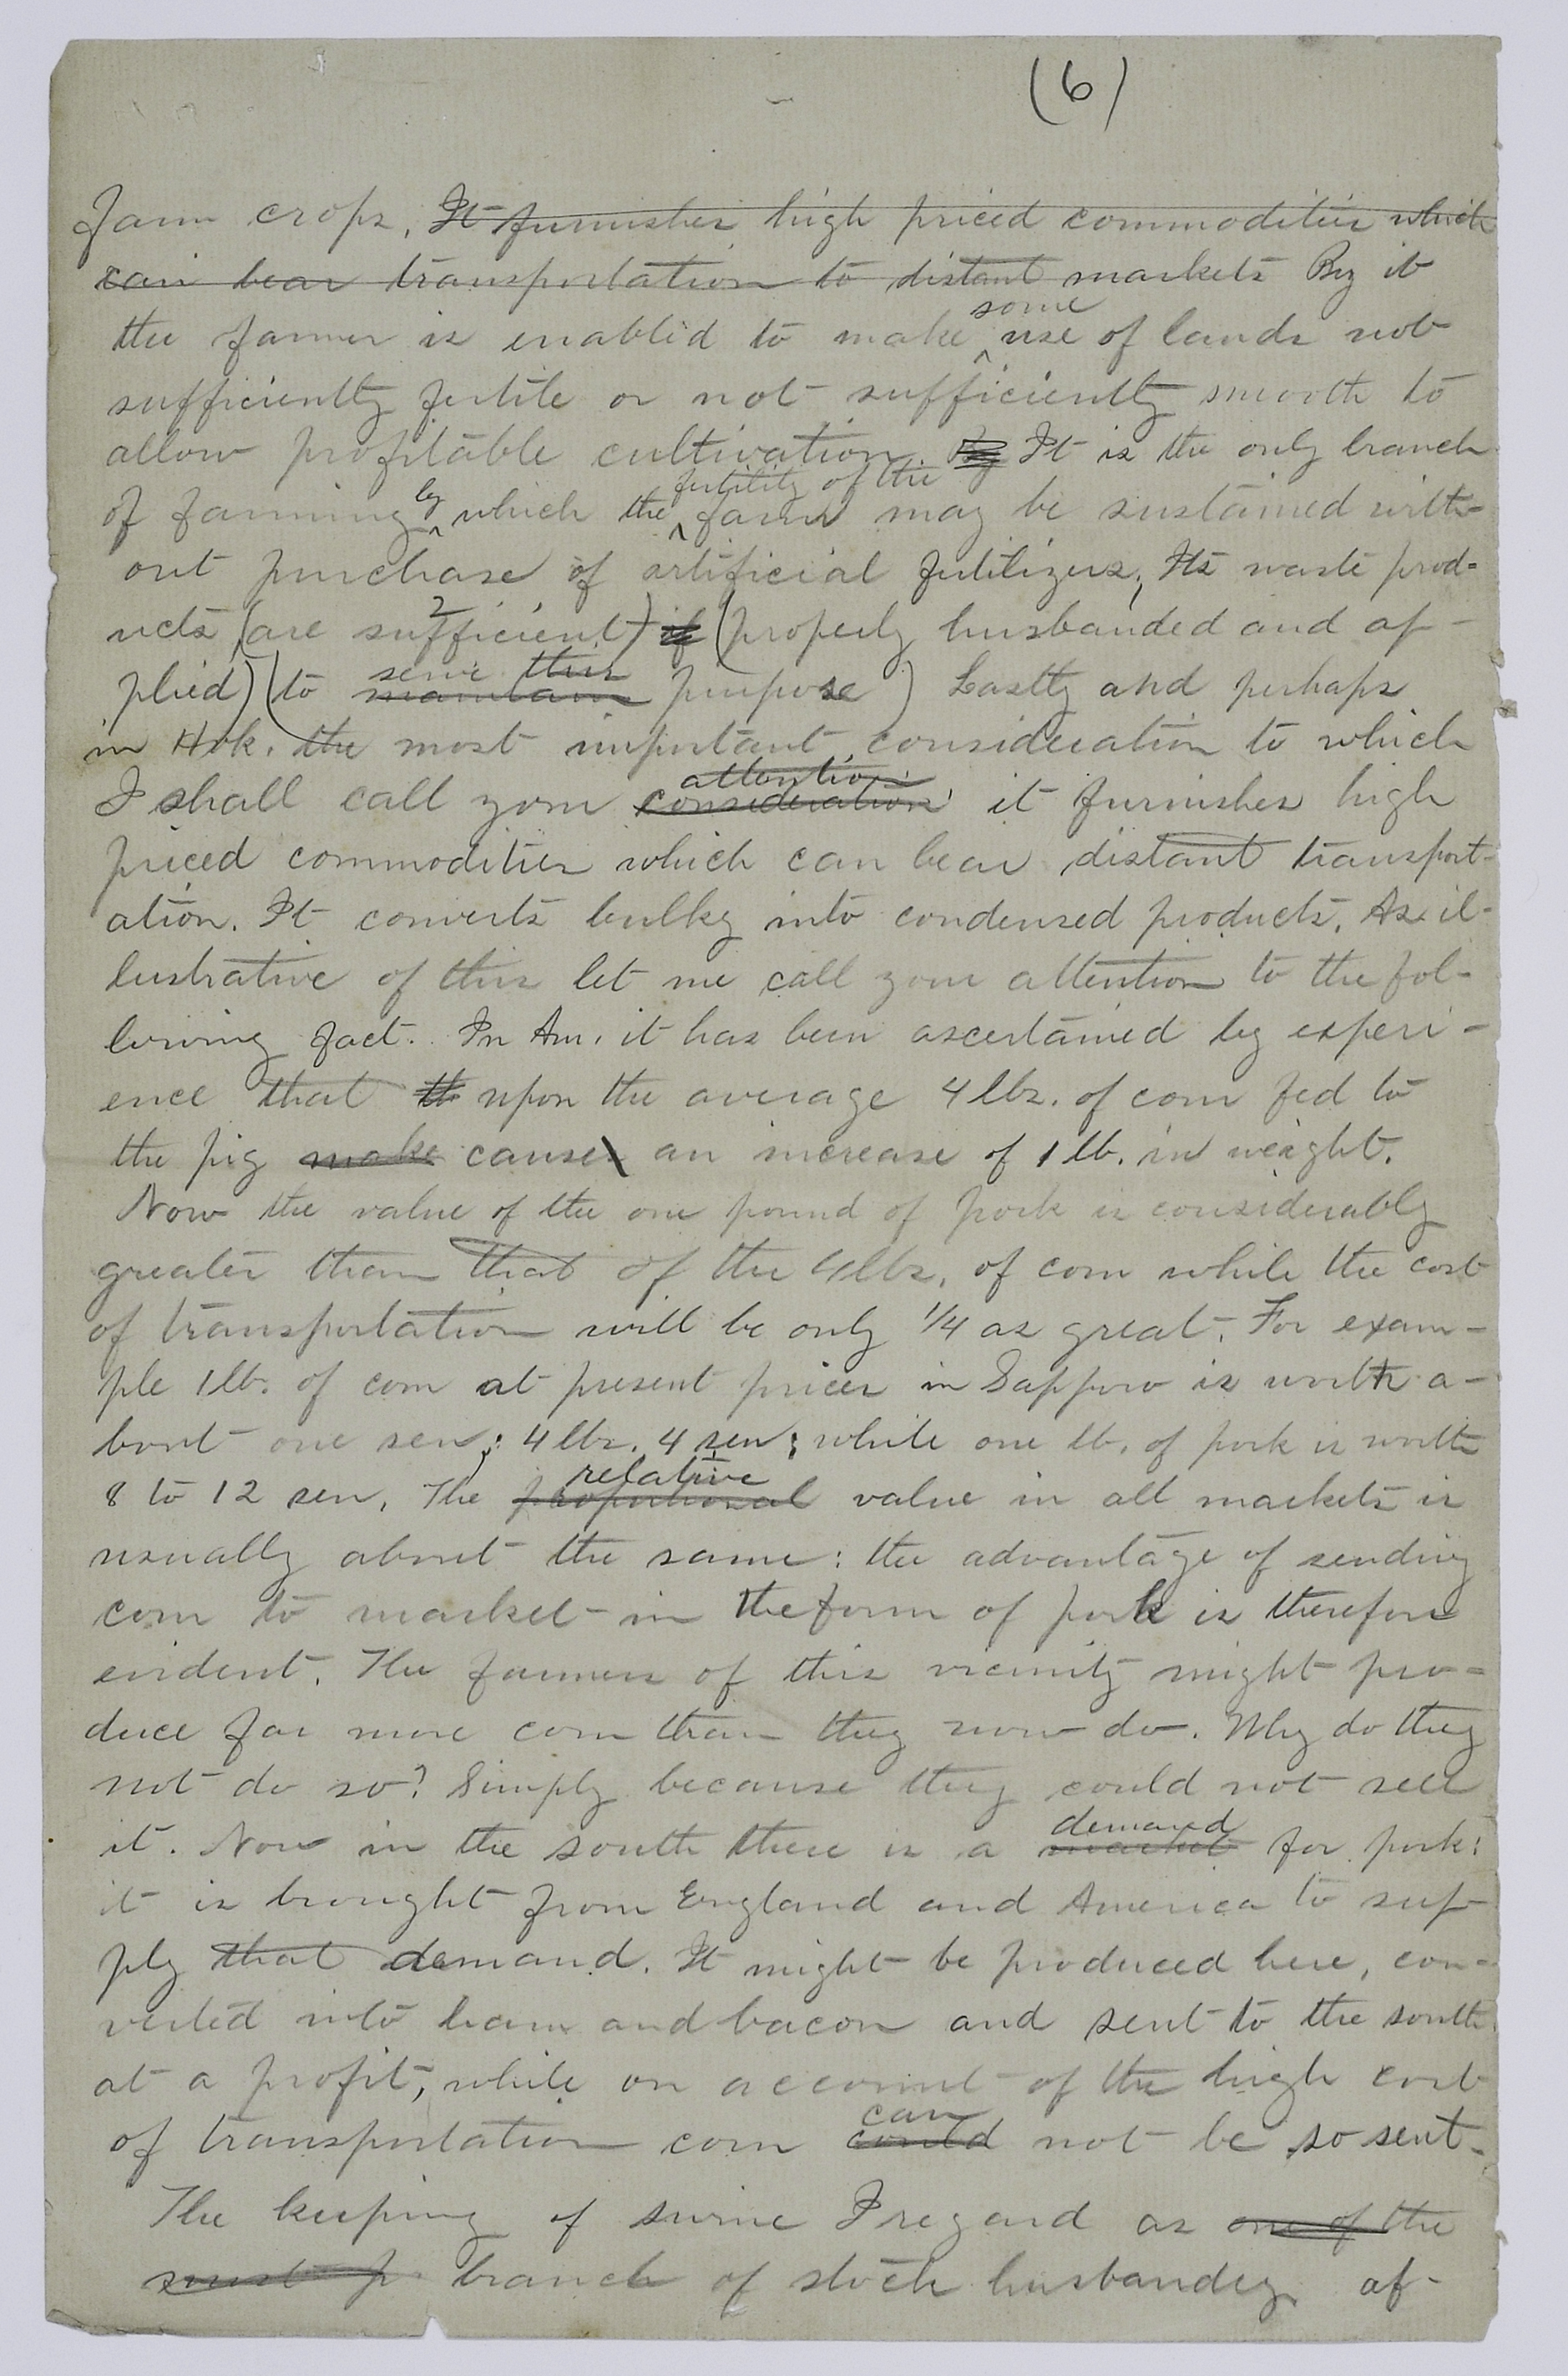 (6)
farm crops. It furnishes high priced commodities which
can bear transportation to distant markets By it
the farmer is enabled to make some use of lands not
sufficiently fertile or not sufficiently smooth to
allow profitable cultivation. By It is the only branch
of farming by which the fertility of the farm may be sustained with-
out purchase of artificial fertilizers, Its waste prod-
ucts (are sufficient) 2 if (properly husbanded and ap-
plied) (to maintain serve this purpose) Lastly and perhaps
in Hok. the most important consideration to which
I shall call your consideration attention it furnishes high
priced commodities which can bear distant transport-
ation. It converts bulky into condensed products. As il-
lustrative of this let me call your attention to the fol-
lowing fact. In Am. it has been ascertained by experi-
ence that th upon the average 4 lbs. of corn fed to
the pig make causes an increase of 1 lb. in weight.
Now the value of the one pound of pork is considerably
greater than that of the 4 lbs. of corn while the cost
of transportation will be only 1/4 as great. For exam-
ple 1 lb. of corn at present prices in Sapporo is worth a-
bout one sen; 4 lbs. 4 sen; while one lb. of pork is worth
8 to 12 sen. The proportional relative value in all markets is
usually about the same: the advantage of sending
corn to market in the form of pork is therefore
evident. The farmers of this vicinity might pro-
duce far more corn than they now do. Why do they
not do so? Simply because they could not sell
it. Now in the south there is a market demand for pork:
it is brought from England and America to sup-
ply that demand. It might be produced here, con-
verted into ham and bacon and sent to the south
at a profit, while on account of the high cost
of transportation corn could can not be so sent.
The keeping of swine I regard as one of the
most p branch of stock husbandry af-